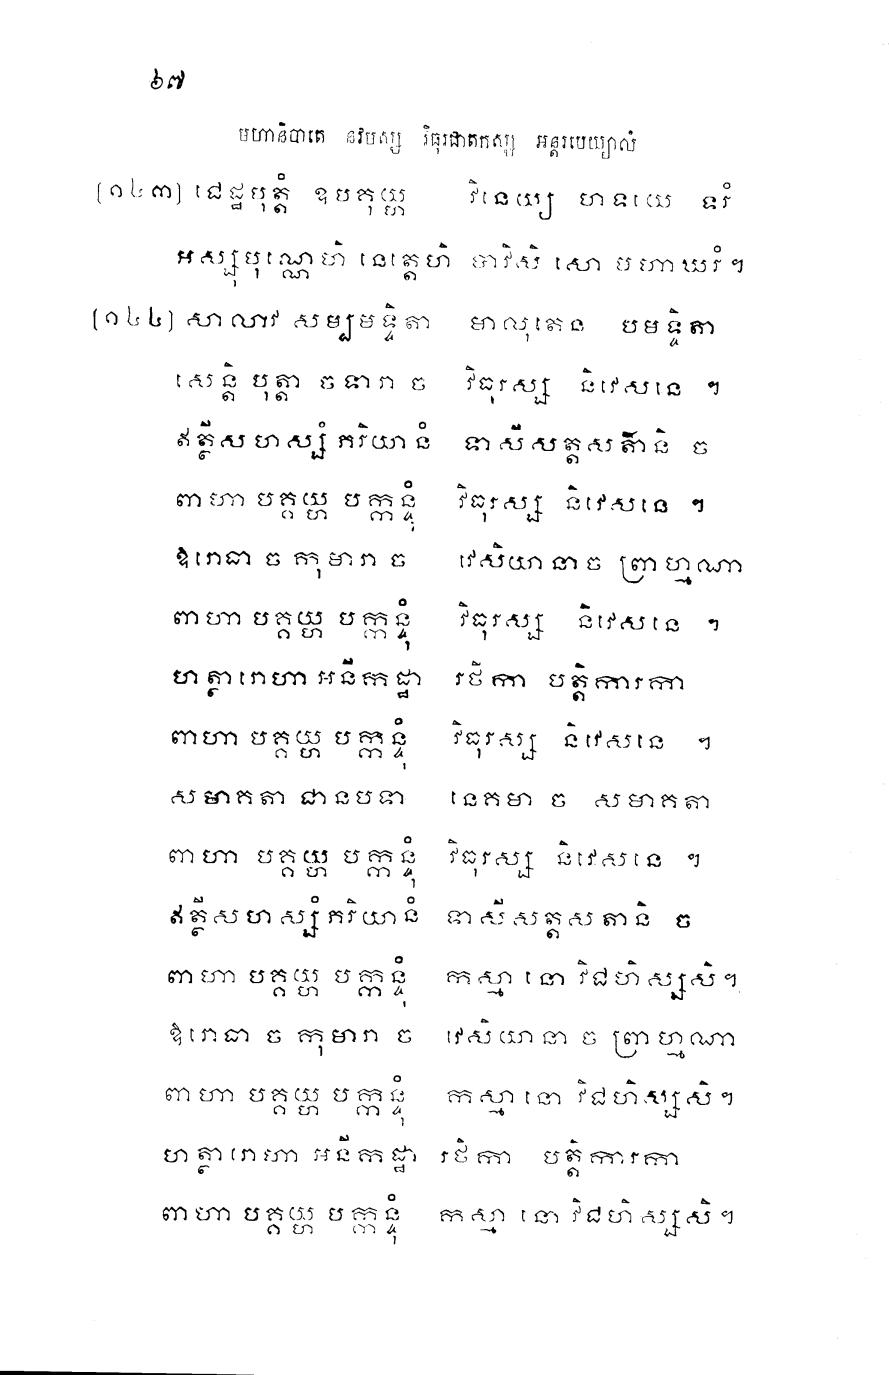 ៦៧
មហានិបាតេ នវបស្ស វិធុរជាតកស្ស អន្តរបេយ្យាលំ
(១៤៣) ជេដ្ឋបុត្តំ ឧបគុយ្ហ វិនេយ្យ ហទយេ ទរំ
អស្សុបុណ្ណេហិ នេត្តេហិ បាវិសិ សោ មហាឃរំ ។
(១៤៤) សាលាវ សម្បមទ្ទិតា មាលុតេន បមទ្ទិតា
សេន្តិ បុត្តា ច ទារា ច វិធុរស្ស និវេសនេ ។
ឥត្ថីសហស្សំ ភរិយានំ ទាសីសត្តសតានិ ច
ពាហា បគ្គយ្ហ បក្កន្ទុំ វិធុរស្ស និវេសនេ ។
ឱរោធា ច កុមារា ច វេសិយានា ច ព្រាហ្មណា
ពាហា បគ្គយ្ហ បក្កន្ទុំ វិធុរស្ស និវេសនេ ។
ហត្ថារោហា អនីកដ្ឋា រថិកា បត្តិការកា
ពាហា បគ្គយ្ហ បក្កន្ទុំ វិធុរស្ស និវេសនេ ។
សមាគតា ជានបទា នេគមា ច សមាគតា
ពាហា បគ្គយ្ហ បក្កន្ទុំ វិធុរស្ស និវេសនេ ។
ឥត្ថីសហស្សំ ភរិយានំ ទាសីសត្តសតានិ ច
ពាហា បគ្គយ្ហ បក្កន្ទុំ កស្មា នោ វិជហិស្សសិ ។
ឱរោធា ច កុមារា ច វេសិយានា ច ព្រាហ្មណា
ពាហា បគ្គយ្ហ បក្កន្ទុំ កស្មា នោ វិជហិស្សសិ ។
ហត្ថារោហា អនីកដ្ឋា រថិកា បត្តិការកា
ពាហា បគ្គយ្ហ បក្កន្ទុំ កស្មា នោ វិជហិស្សសិ ។